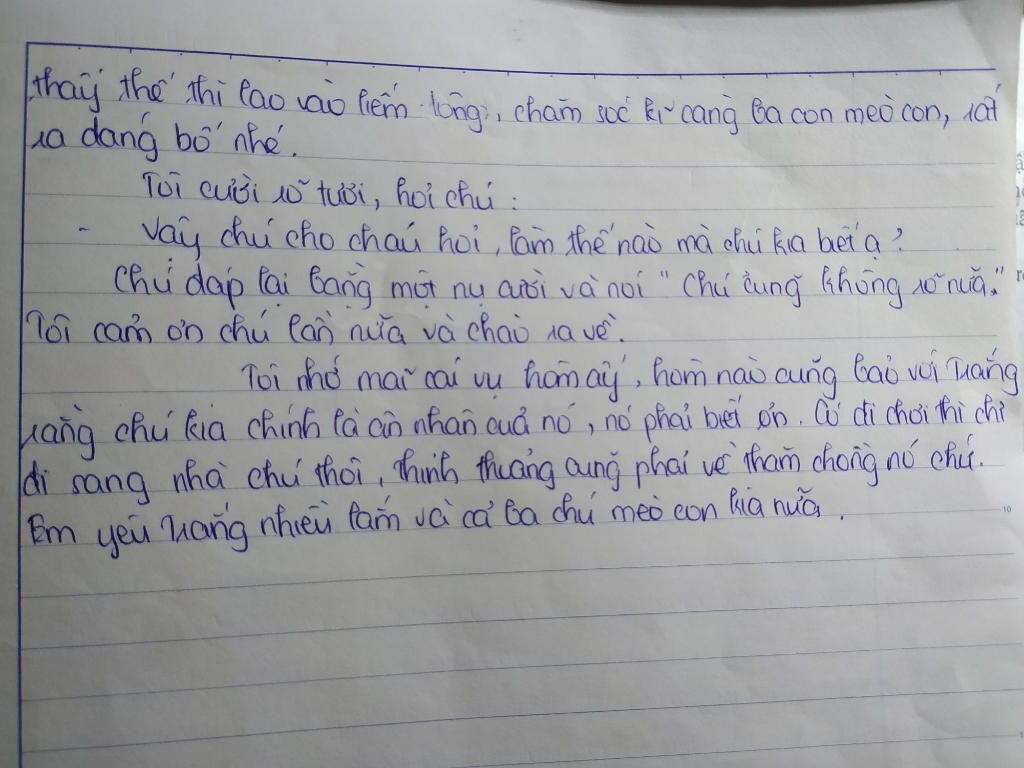 thấy thế thì lao vào liếm lông, chăm sóc kĩ càng ba con mèo con, rất
ra dáng bố nhé.
Tôi cười rõ tươi, hỏi chú :
- Vậy chú cho cháu hỏi, làm thế nào mà chú kia biết ạ?
Chú đáp lại bằng một nụ cười và nói " Chú cũng không rõ nữa."
Tôi cảm ơn chú lần nữa và chào ra về.
Tôi nhớ mãi cái vụ hôm ấy, hôm nào cũng bảo với Trắng
rằng chú kia chính là ân nhân của nó, nó phải biết ơn. Có đi chơi thì chỉ
đi sang nhà chú thôi, thỉnh thoảng cũng phải về thăm chồng nó chứ.
Em yêu Trắng nhiều lắm và cả ba chú mèo con kia nữa.
10